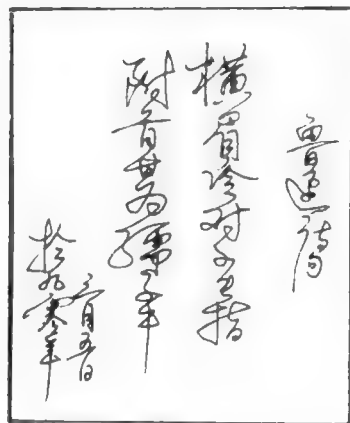 鲁迅诗句
横眉冷对千夫指
俯首甘为孺子牛
三月五日